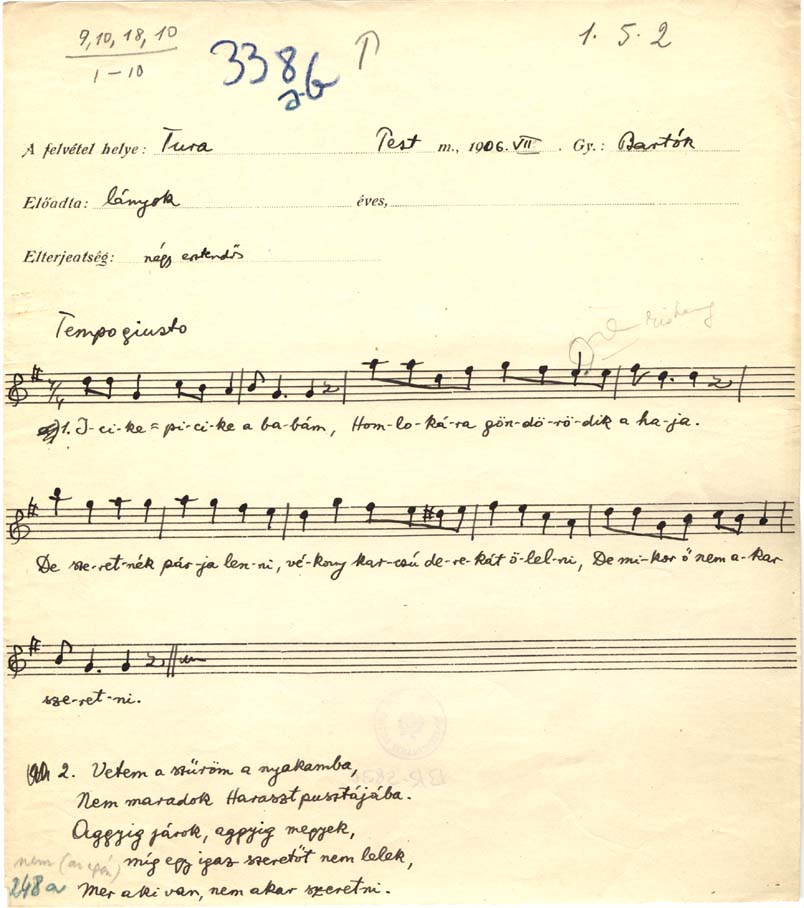 9, 10, 18, 10
1 – 10
338
a-b
1. 5. 2
A felvétel helye: Tura Pest m., 1906. VII. Gy.: Bartók
Előadta: lányok éves,
Elterjeatség: négy esztendős
Tempo giusto
1. I-ci-ke = pi-ci-ke a ba-bám, Hom-lo-ká-ra gön-dö-rö-dik a ha-ja.
De sze-ret-nék pár-ja len-ni, vé-kony kar-csú de-re-kát ö-lel-ni, De mi-kor ő nem a-kar
sze-ret-ni.
2. Vetem a szűröm a nyakamba,
Nem maradok Harasztpusztájába.
Aggyig járok, aggyig megyek,
míg egy igaz szeretőt nem lelek,
248a Mer aki van, nem akar szeretni.